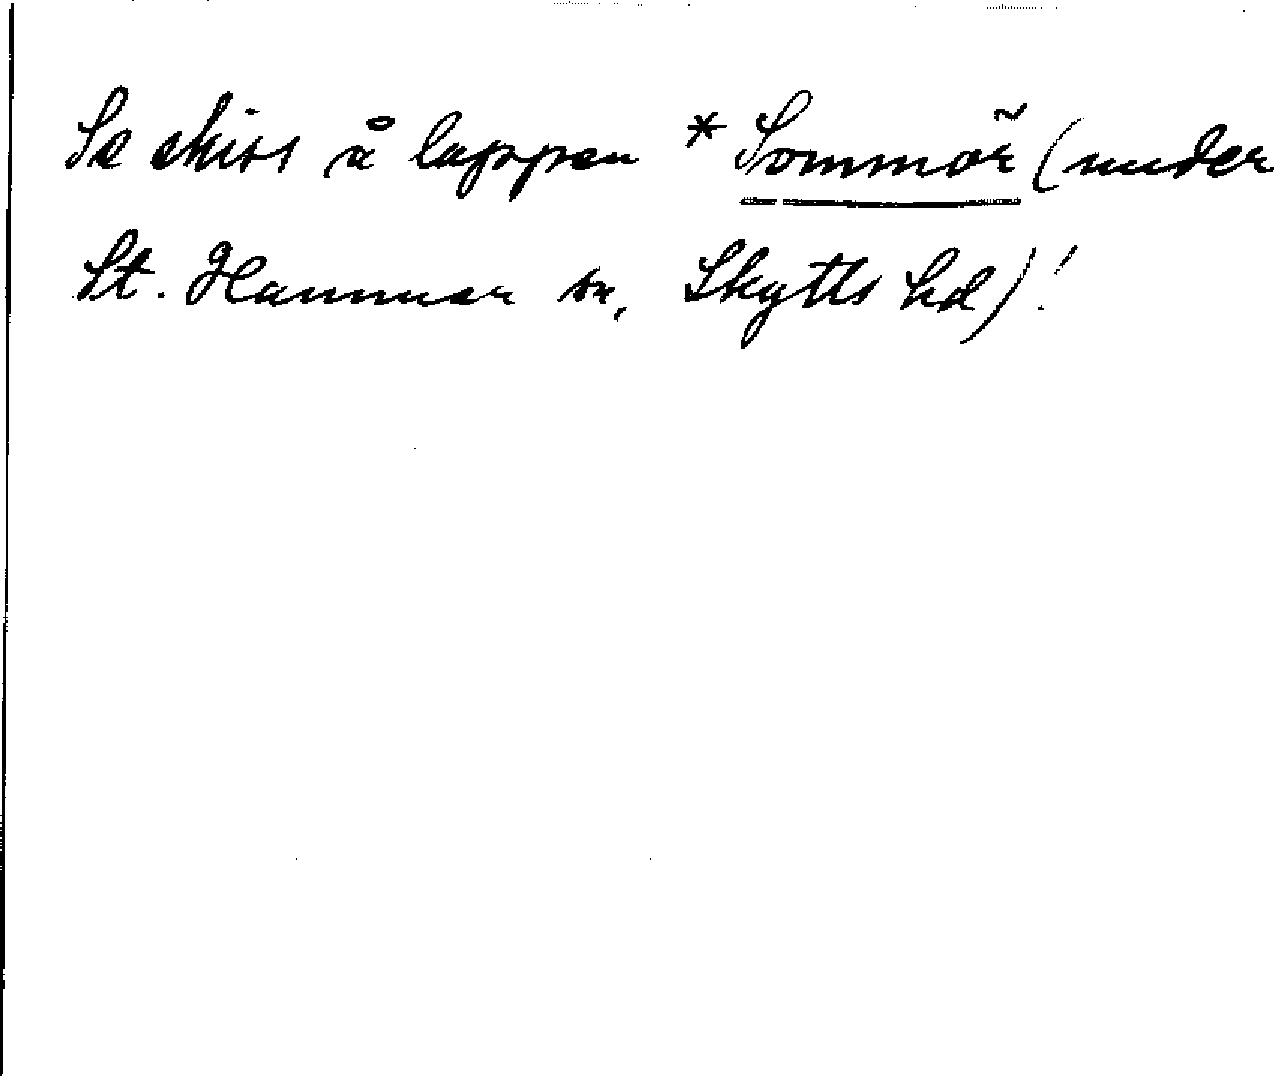 Se skiss å lappen *Sommör (under
St. Hammar sn, Skytts hd)!